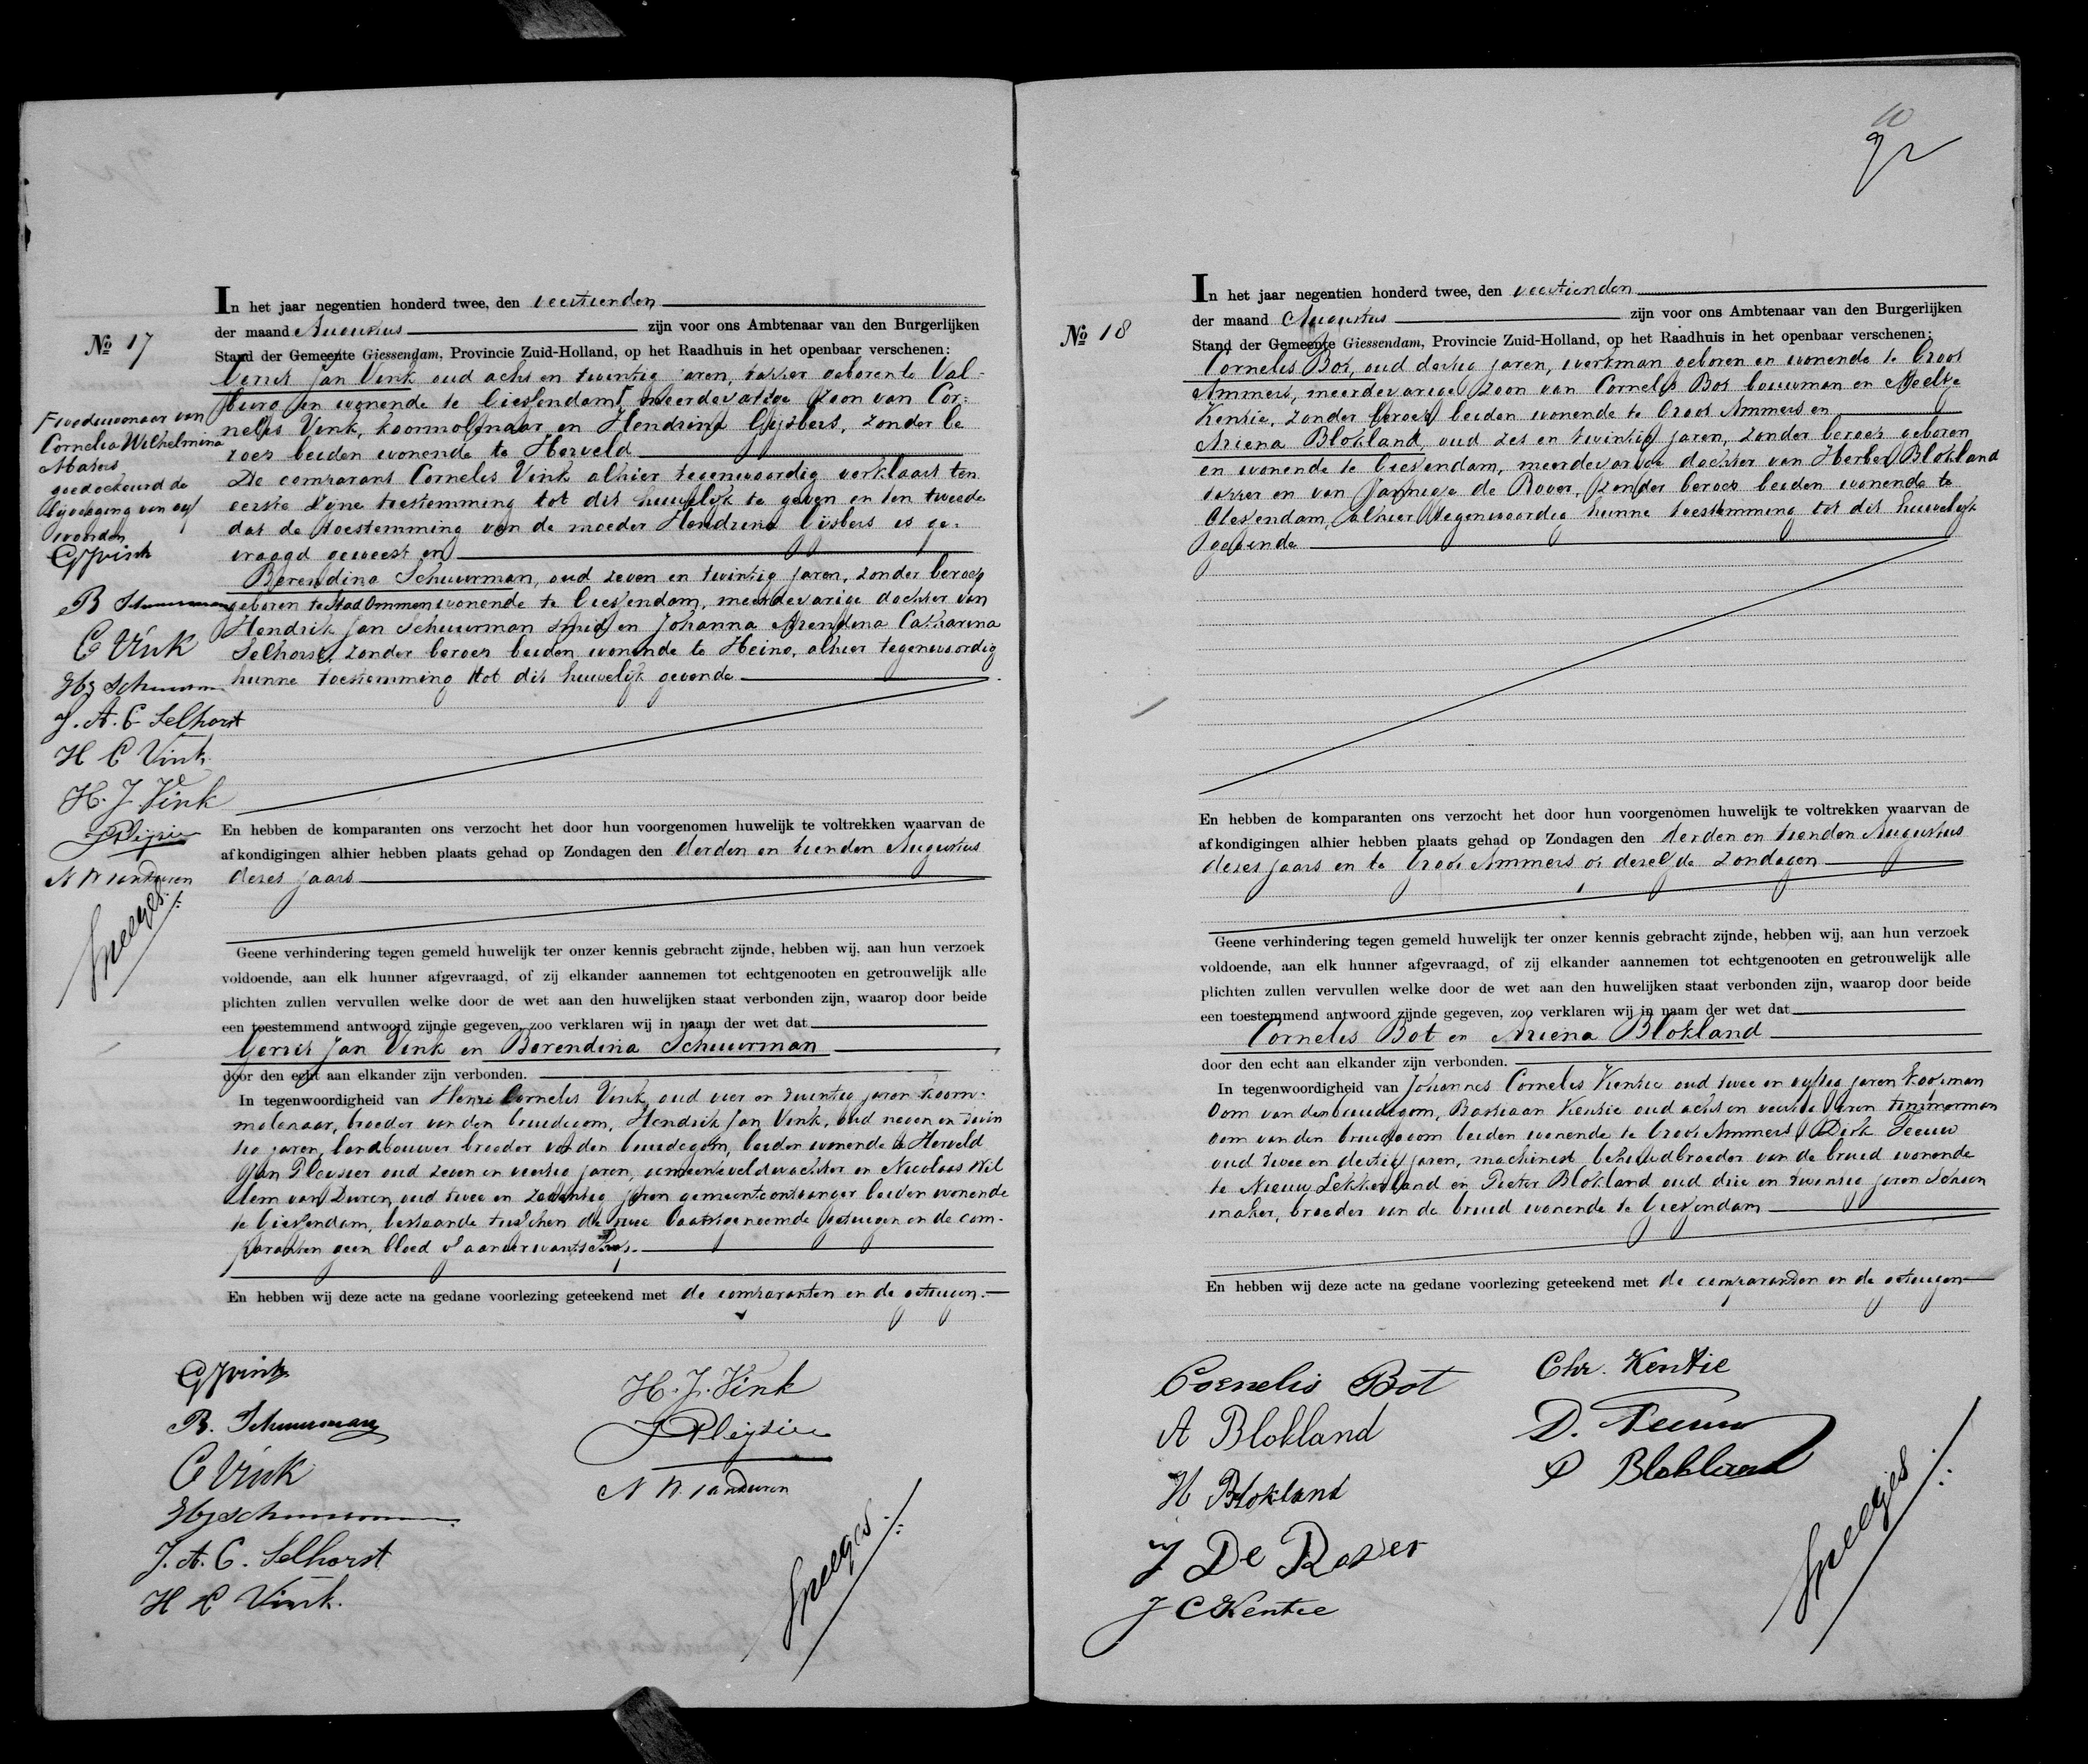 No 17
In het jaar negentien honderd twee, den veertienden
der maand Augustus zijn voor ons Ambtenaar van den Burgerlijken
Stand der Gemeente Giessendam, Provincie Zuid-Holland, op het Raadhuis in het openbaar verschenen:
Gerrit Jan Vink oud acht en twintig jaren, bakker geboren te Val-
burg en wonende te Giessendam, meerderjarige zoon van Cor-
nelis Vink, koornmolenaar en Hendrina Gijsbers, zonder be
roep beiden wonende te Herveld
De comparant Cornelis Vink alhier tegenwoordig verklaart ten
eerste zijne toestemming tot dit huwelijk te geven en ten tweede
dat de toestemming van de moeder Hendrina Gijsbers is ge-
vraagd geweest en
Berendina Schuurman, oud zeven en twintig jaren, zonder beroep
geboren te Stad Ommen wonende te Giessendam, meerderjarige dochter van
Hendrik Jan Schuurman smid en Johanna Arendina Catharina
Selhorst, zonder beroep beiden wonende te Heino, alhier tegenwoordig
hunne toestemming tot dit huwelijk gevende
weduwnaar van
Cornelia Wilhelmina
goedgekeurd de
bijvoeging van
woorden
GJ Vink
B Schuurman
C Vink
HJ Schuurman
J. A. C Selhorst
H C Vink
H. J. Vink
J Pleijsier
N W van Duren
En hebben de komparanten ons verzocht het door hun voorgenomen huwelijk te voltrekken waarvan de
afkondigingen alhier hebben plaats gehad op Zondagen den derden en tienden Augustus
dezes jaars
Geene verhindering tegen gemeld huwelijk ter onzer kennis gebracht zijnde, hebben wij, aan hun verzoek
voldoende, aan elk hunner afgevraagd, of zij elkander aannemen tot echtgenooten en getrouwelijk alle
plichten zullen vervullen welke door de wet aan den huwelijken staat verbonden zijn, waarop door beide
een toestemmend antwoord zijnde gegeven, zoo verklaren wij in naam der wet dat
Gerrit Jan Vink en Berendina Schuurman
door den echt aan elkander zijn verbonden.
In tegenwoordigheid van Henri Cornelis Vink, oud vier en twintig jaren koorn-
molenaar, broeder van den bruidegom, Hendrik Jan Vink, oud negen en twin
tig jaren, landbouwer broeder van den bruidegom, beiden wonende te Herveld
Jan Pleysier oud zeven en veertig jaren, gemeenteveldwachter en Nicolaas Wil
lem van Duren, oud twee en zeventig jaren gemeenteontvanger beiden wonende
te Giessendam, bestaande tusschen de twee laatstgenoemde getuigen en de com-
paranten geen bloed of aanverwantschap.
En hebben wij deze acte na gedane voorlezing geteekend met de comparanten en de getuigen.
GJ Vink
B. Schuurman
C Vink
HJ Schuurman
J. A. C. Selhorst
H C Vink.
H. J. Vink
J Pleijsier
N W. van Duren
No 18
In het jaar negentien honderd twee, den veertienden
der maand Augustus zijn voor ons Ambtenaar van den Burgerlijken
Stand der Gemeente Giessendam, Provincie Zuid-Holland, op het Raadhuis in het openbaar verschenen:
Cornelis Bot, oud dertig jaren, werkman geboren en wonende te Groot
Ammers, meerderjarige zoon van Cornelis Bot bouwman en Neeltje
Kentie, zonder beroep beiden wonende te Groot Ammers en
Ariena Blokland, oud zes en twintig jaren, zonder beroep geboren
en wonende te Giessendam, meerderjarige dochter van Herbert Blokland
bakker en van Jannigje de Rover, zonder beroep beiden wonende te
Giessendam, alhier tegenwoordig hunne toestemming tot dit huwelijk
gevende
En hebben de komparanten ons verzocht het door hun voorgenomen huwelijk te voltrekken waarvan de
afkondigingen alhier hebben plaats gehad op Zondagen den derden en tienden Augustus
dezes jaars en te Groot Ammers op dezelfde zondagen
Geene verhindering tegen gemeld huwelijk ter onzer kennis gebracht zijnde, hebben wij, aan hun verzoek
voldoende, aan elk hunner afgevraagd, of zij elkander aannemen tot echtgenooten en getrouwelijk alle
plichten zullen vervullen welke door de wet aan den huwelijken staat verbonden zijn, waarop door beide
een toestemmend antwoord zijnde gegeven, zoo verklaren wij in naam der wet dat
Cornelis Bot en Ariena Blokland
door den echt aan elkander zijn verbonden.
In tegenwoordigheid van Johannes Cornelis Kentie oud twee en vijftig jaren koopman
oom van den bruidegom, Bastiaan Kentie oud acht en veertig jaren timmerman
oom van den bruidegom beiden wonende te Groot Ammers, Dirk Teeuw
oud twee en dertig jaren, machinist behuwdbroeder van de bruid wonende
te Nieuw Lekkerland en Pieter Blokland oud drie en twintig jaren schoen
maker, broeder van de bruid wonende te Giessendam
En hebben wij deze acte na gedane voorlezing geteekend met de comparanten en de getuigen
Cornelis Bot
A Blokland
H Blokland
J De Rover
J C Kentie
Chr. Kentie
D. Teeuw
P Blokland